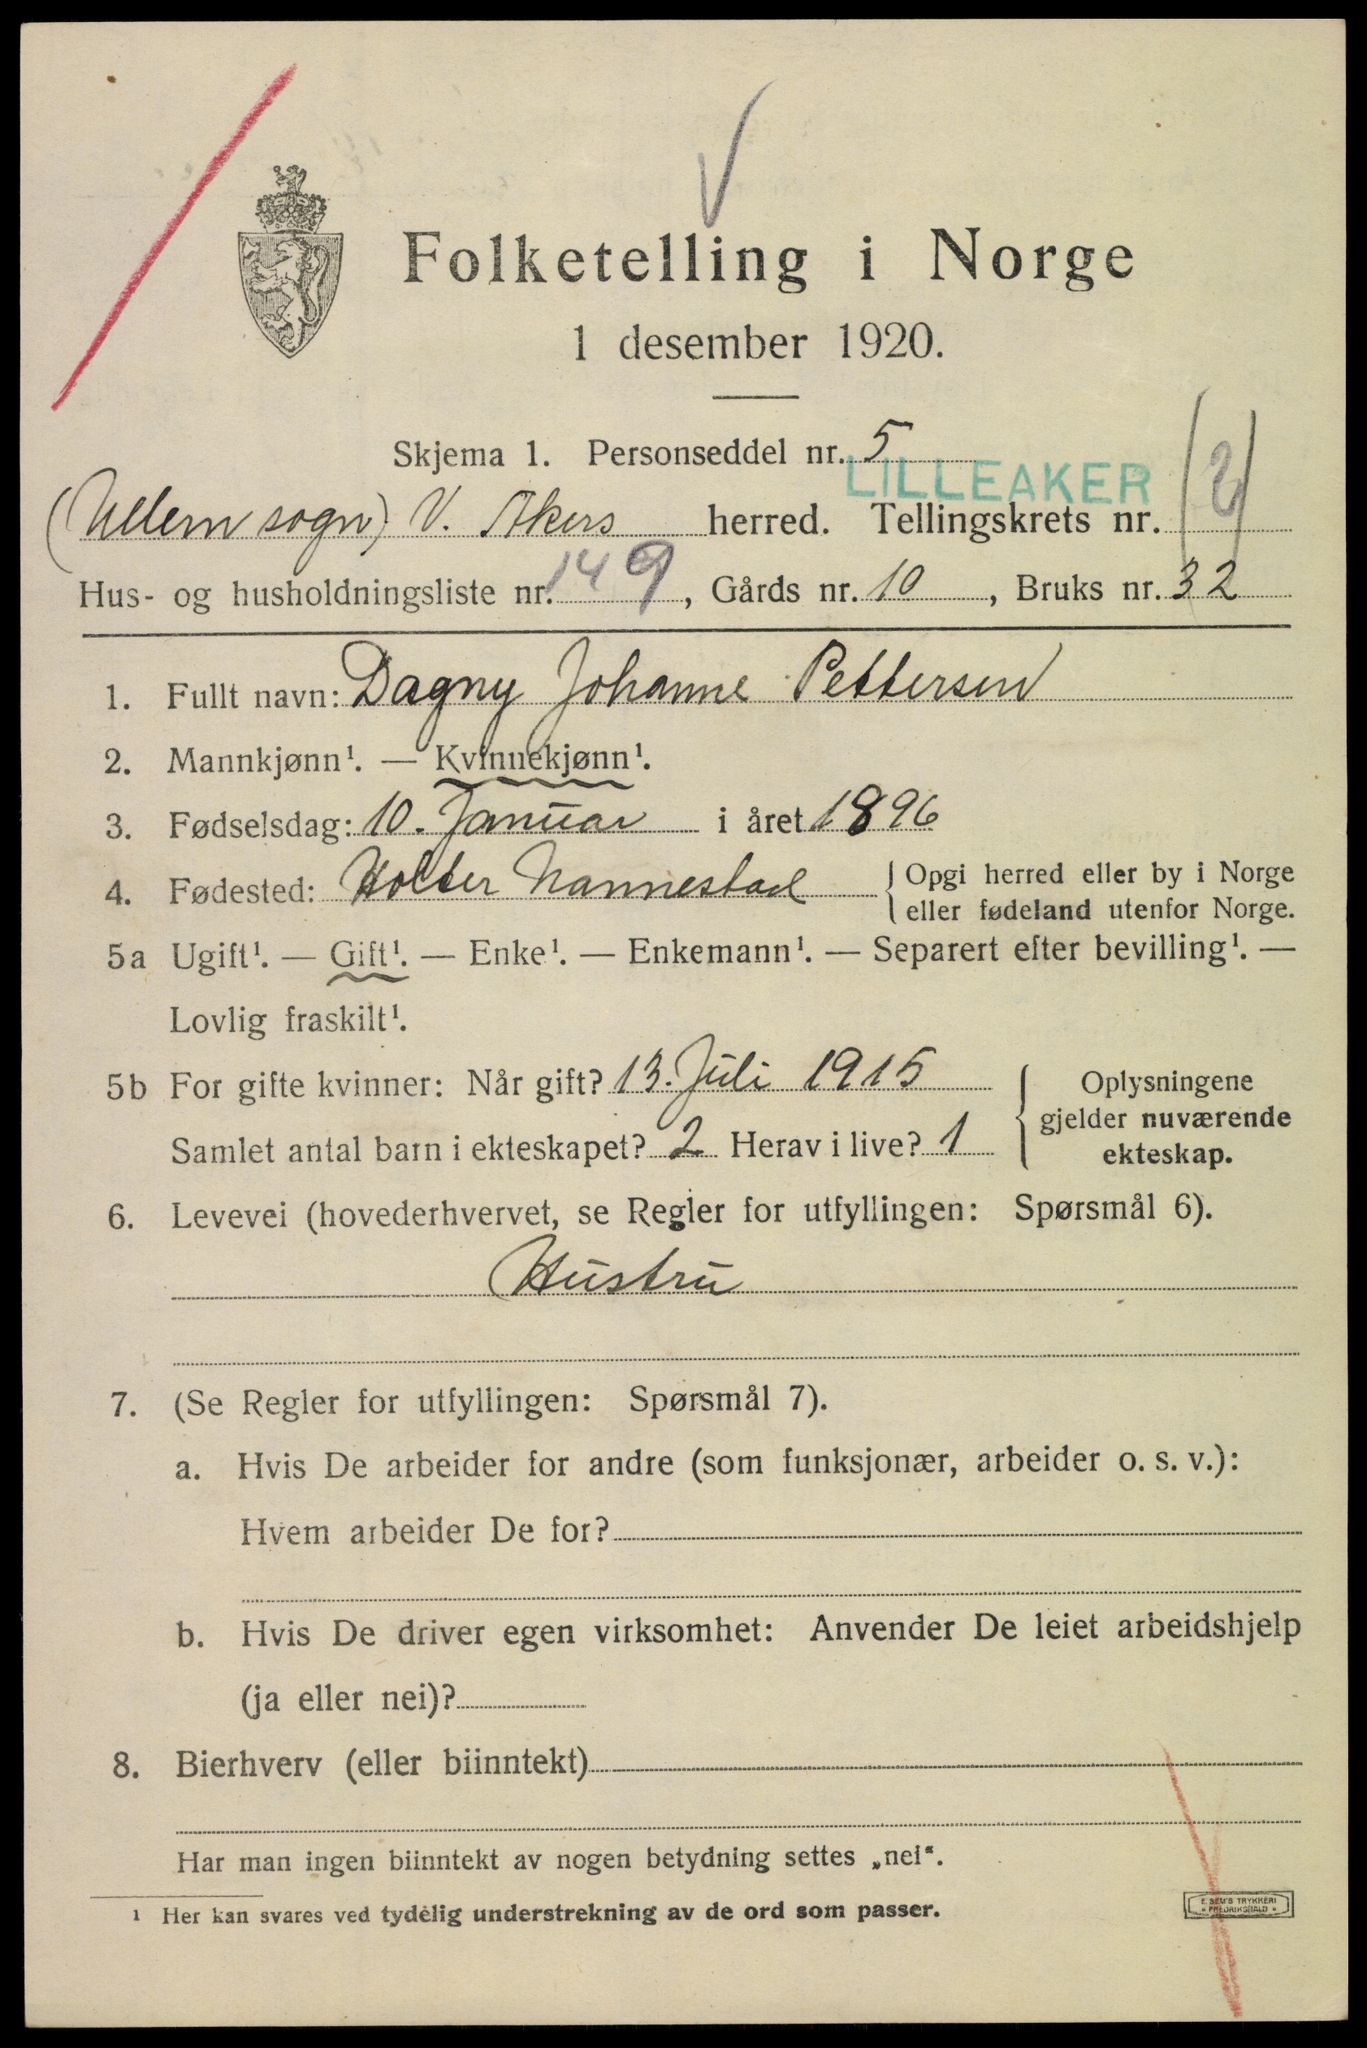 Folketelling i Norge
1 desember 1920.
Skjema 1. Personseddel nr. 5
LILLEAKER
(Ullern sogn) V. Akers herred. Tellingskrets nr. (2)
Hus- og husholdningsliste nr. 149, Gårds nr. 10, Bruks nr. 32
1. Fullt navn: Dagny Johanne Pettersen
2. Mannkjønn¹. — Kvinnekjønn¹.
3. Fødselsdag: 10. Januar i året 1896
4. Fødested: Holter Nannestad { Opgi herred eller by i Norge
eller fødeland utenfor Norge.
5a Ugift¹. — Gift¹. — Enke¹. — Enkemann¹. — Separert efter bevilling¹. —
Lovlig fraskilt¹.
5b For gifte kvinner: Når gift? 13. Juli 1915 { Oplysningene
gjelder nuværende
Samlet antal barn i ekteskapet? 2 Herav i live? 1 ekteskap.
6. Levevei (hovederhvervet, se Regler for utfyllingen: Spørsmål 6).
Hustru
7. (Se Regler for utfyllingen: Spørsmål 7).
a. Hvis De arbeider for andre (som funksjonær, arbeider o. s. v.):
Hvem arbeider De for?
b. Hvis De driver egen virksomhet: Anvender De leiet arbeidshjelp
(ja eller nei)?
8. Bierhverv (eller biinntekt)
Har man ingen biinntekt av nogen betydning settes „nei“.
¹ Her kan svares ved tydelig understrekning av de ord som passer.
E. SEM'S TRYKKERI
FREDRIKSHALD